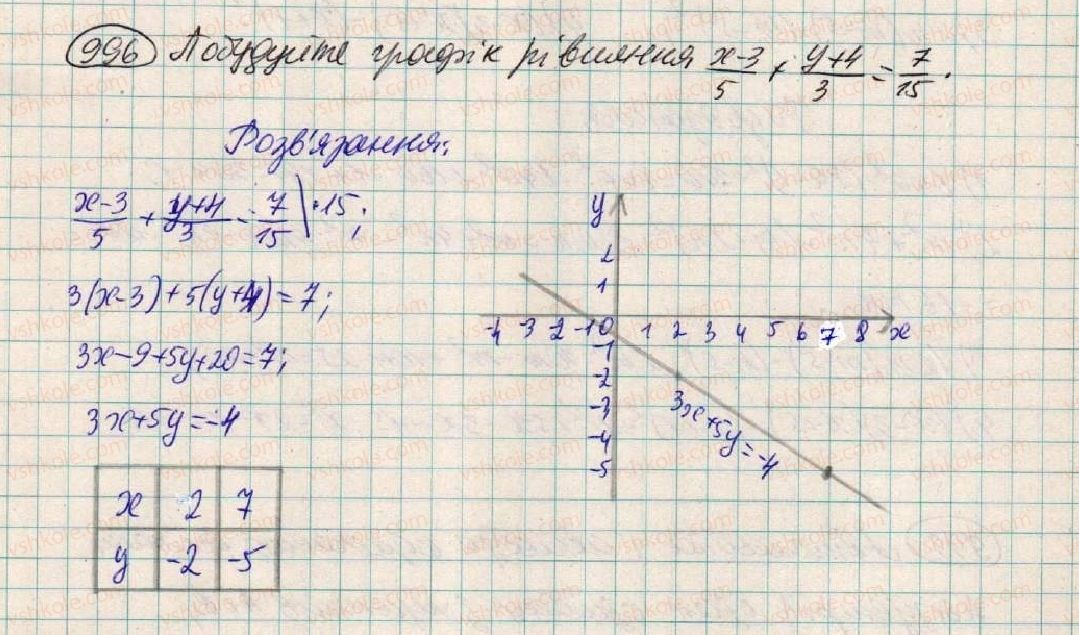 996 Побудуйте графік рівняння (x-3)/5 + (y+4)/3 = 7/15.
Розв'язання:
(x-3)/5 + (y+4)/3 = 7/15 |·15;
3(x-3)+5(y+4)=7;
3x-9+5y+20=7;
3x+5y=-4
x 2 7
y -2 -5
y
2
1
-4 -3 -2 -1 0 1 2 3 4 5 6 7 8 x
-1
-2
-3
-4
-5
3x+5y=-4
vshkole.com